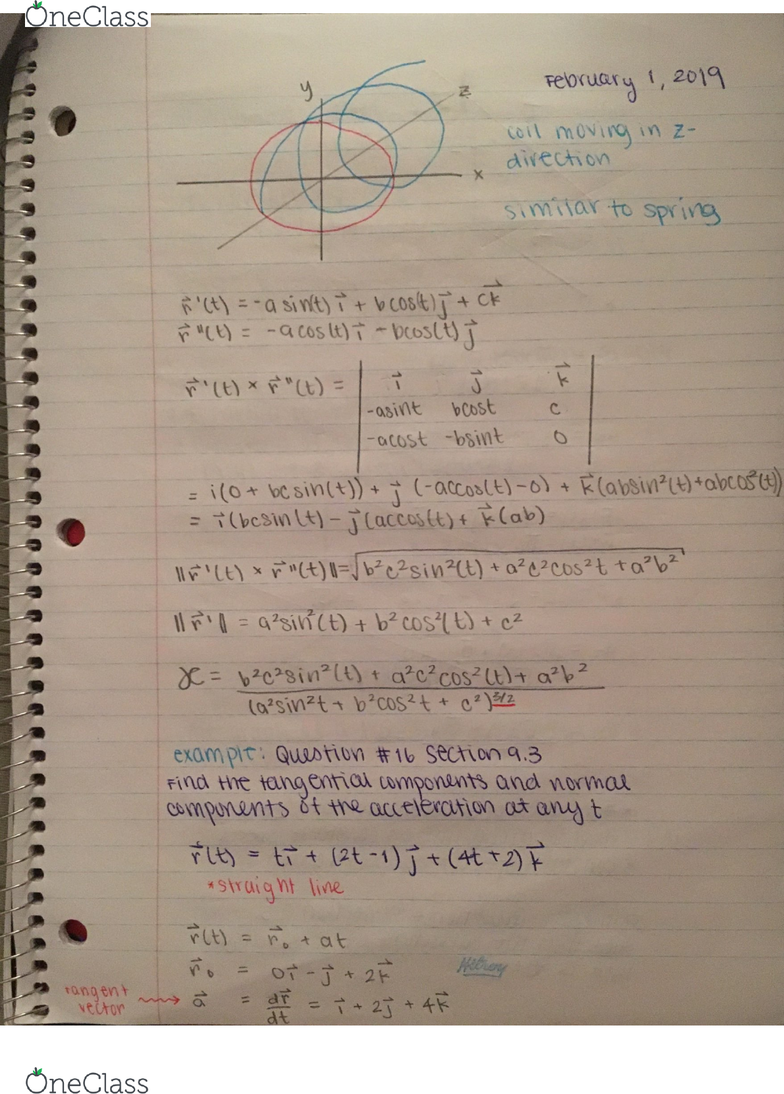 OneClass
February 1, 2019
y
z
x
coil moving in z-
direction
similar to spring
r⃗'(t) = -a sin(t) i⃗ + b cos(t) j⃗ + ck⃗
r⃗"(t) = -a cos(t) i⃗ - bcos(t) j⃗
r⃗'(t) × r⃗"(t) = | i⃗ j⃗ k⃗ |
-asint bcost c
-acost -bsint 0
= i(0 + bc sin(t)) + j⃗ (-accos(t) - 0) + k⃗(absin²(t)+abcos²(t))
= i⃗(bcsin(t) - j⃗(accos(t) + k⃗(ab)
||r⃗'(t) × r⃗"(t)|| = √b²c²sin²(t) + a²c²cos²t + a²b²
||r⃗'|| = a²sin²(t) + b²cos²(t) + c²
ϰ = b²c²sin²(t) + a²c²cos²(t) + a²b²
(a²sin²t + b²cos²t + c²)^3/2
example: Question #16 Section 9.3
Find the tangential components and normal
components of the acceleration at any t
r⃗(t) = ti⃗ + (2t-1) j⃗ + (4t+2) k⃗
*straight line
r⃗(t) = r⃗₀ + at
r⃗₀ = 0i⃗ - j⃗ + 2k⃗
tangent
vector
a⃗ = dr⃗/dt = i⃗ + 2j⃗ + 4k⃗
OneClass